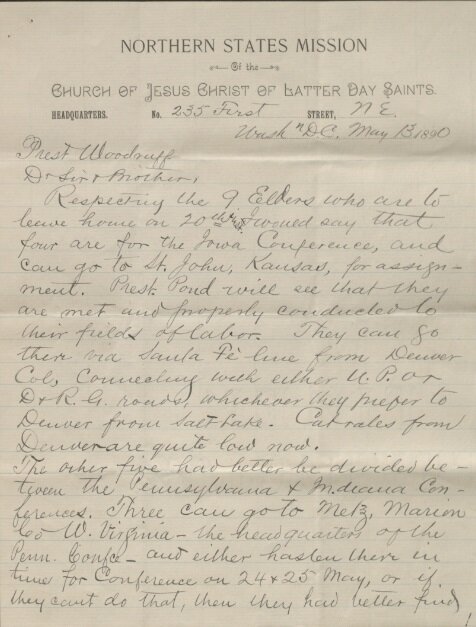 NORTHERN STATES MISSION
Of the
CHURCH OF JESUS CHRIST OF LATTER DAY SAINTS.
HEADQUARTERS. No. 235 First STREET, N E.
Wash n D.C. May 13 1890
Prest Woodruff
Dr Sir & Brother,
Respecting the 9 Elders who are to
leave home on 20th I would say that
four are for the Iowa Conference, and
can go to St. John, Kansas, for assign-
ment. Prest. Pond will see that they
are met and properly conducted to
their fields of labor. They can go
there via Santa Fe line from Denver
Col, connecting with either U. P. or
D & R. G. roads, whichever they prefer to
Denver from Salt Lake. rates from
Denver are quite low now.
The other five had better be divided be-
tween the Pennsylvania & Indiana Con-
ferences. Three can go to Metz, Marion
Co W. Virginia - the headquarters of the
Penn. Confce - and either hasten there in
time for Conference on 24 & 25 May, or if
they cant do that, then they had better find